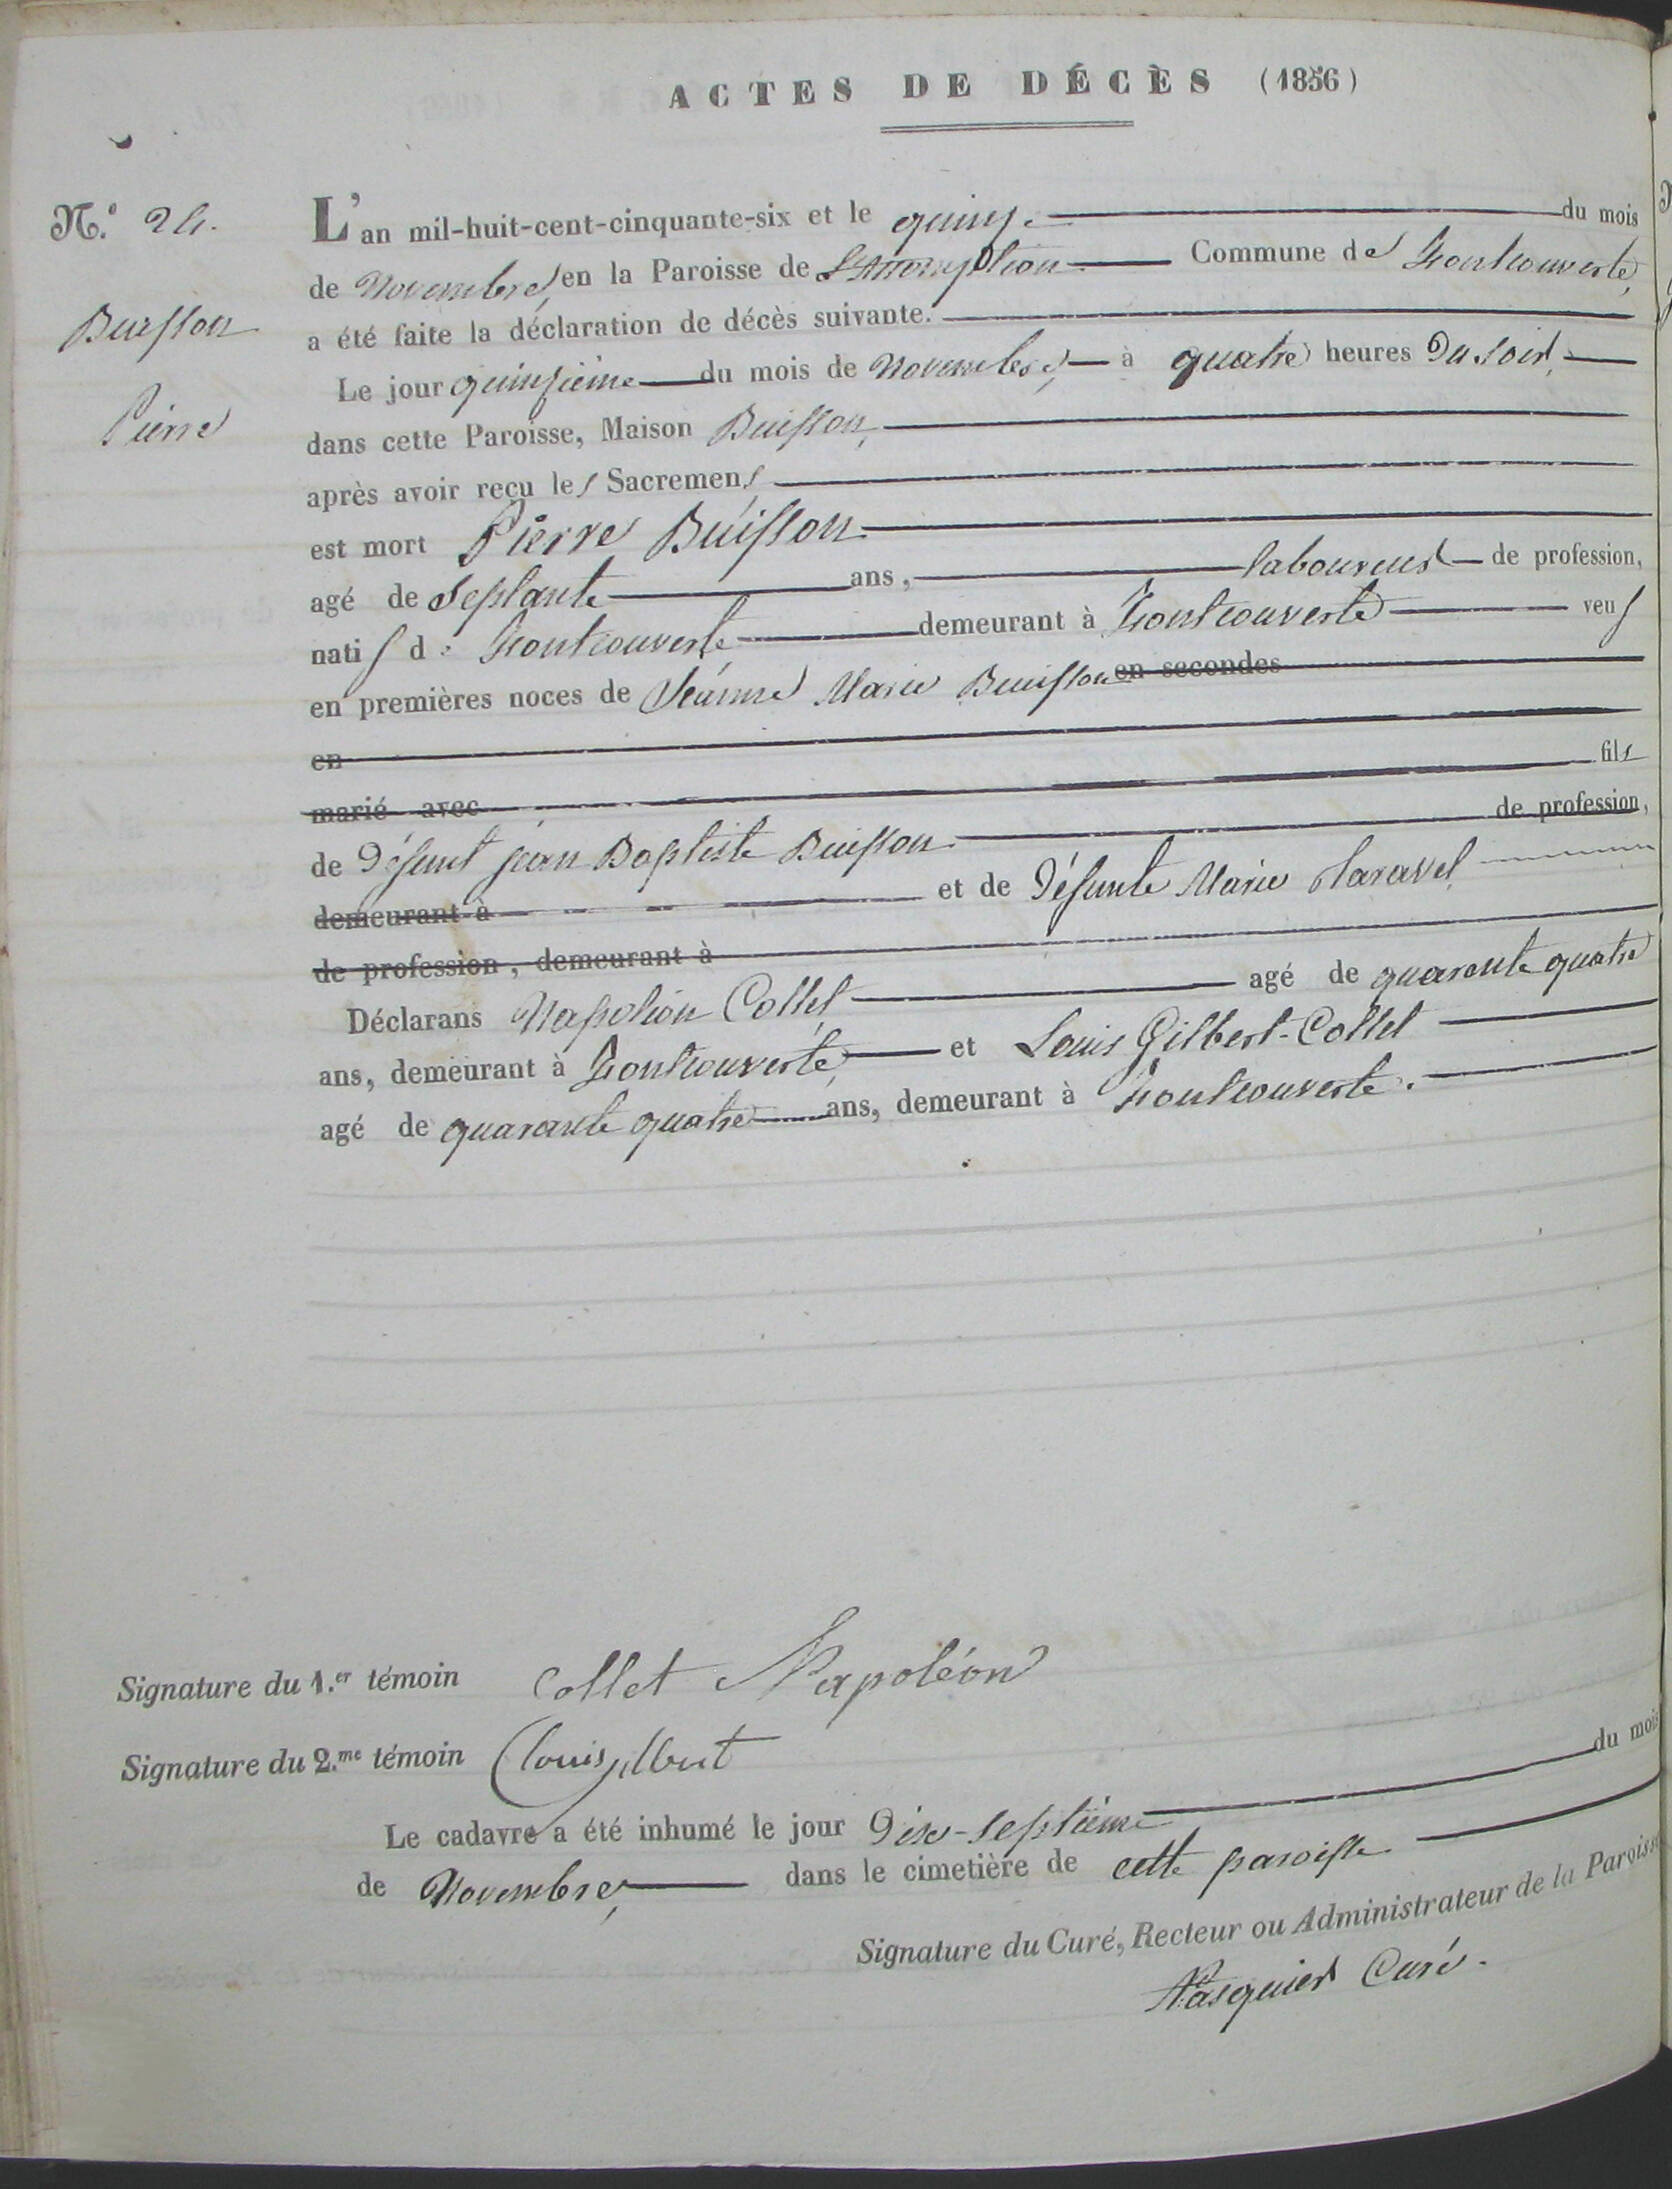 ACTES DE DÉCÈS (1856)
N.° 24.
Buisson
Pierre
L'an mil-huit-cent-cinquante-six et le quinze du mois
de Novembre, en la Paroisse de L'Assomption Commune de Fontcouverte,
a été faite la déclaration de décès suivante.
Le jour quinzième du mois de Novembre, à quatre heures du soir,
dans cette Paroisse, Maison Buisson,
après avoir reçu les Sacremens
est mort Pierre Buisson
agé de septante ans, laboureur de profession,
natif de Fontcouverte demeurant à Fontcouverte veuf
en premières noces de Jeanne Marie Buisson en secondes
en
marié avec fils
de défunt jean Baptiste Buisson de profession,
demeurant à et de défunte Marie Taravel
de profession, demeurant à
Déclarans Napoléon Collet agé de quarante quatre
ans, demeurant à Fontcouverte, et Louis Gilbert-Collet
agé de quarante quatre ans, demeurant à Fontcouverte.
Signature du 1.er témoin Collet Napoléon
Signature du 2.me témoin
Le cadavre a été inhumé le jour dix-septième du mois
de Novembre, dans le cimetière de cette paroisse
Signature du Curé, Recteur ou Administrateur de la Paroisse
Pasquier Curé.